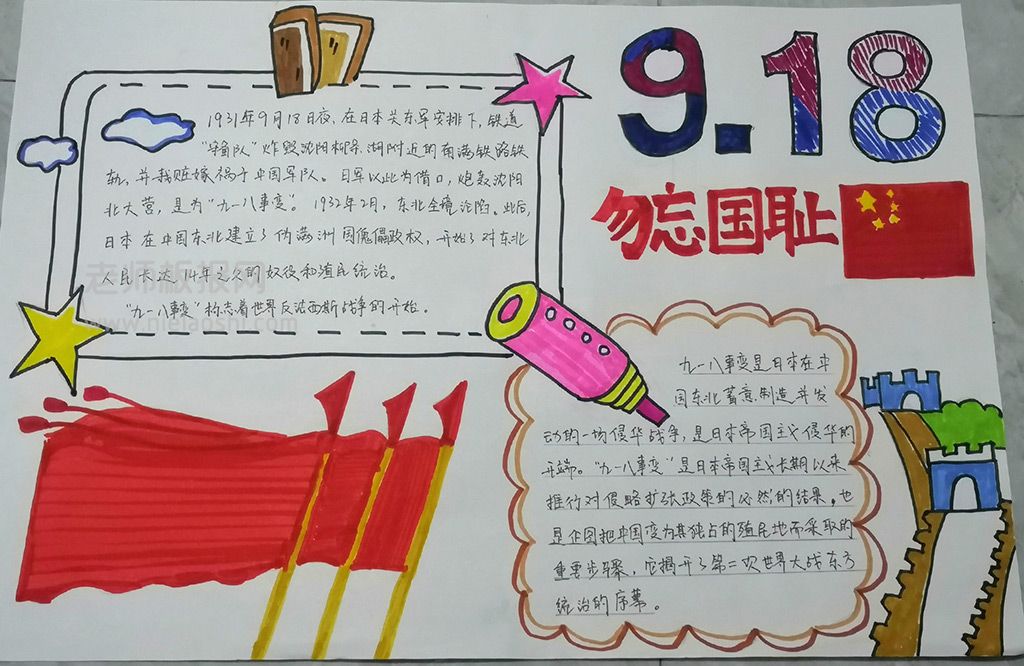 9.18
勿忘国耻
1931年9月18日夜，在日本关东军安排下，铁道
"守备队"炸毁沈阳柳条湖附近的南满铁路铁
轨，并栽赃嫁祸于中国军队。日军以此为借口，炮轰沈阳
北大营，是为"九一八事变"。1932年2月，东北全境沦陷。此后，
日本在中国东北建立了伪满洲国傀儡政权，开始了对东北
人民长达14年之久的奴役和殖民统治。
"九一八事变"标志着世界反法西斯战争的开始。
老师板报网
www.nielaoshi.com
九一八事变是日本在中
国东北蓄意制造并发
动的一场侵华战争，是日本帝国主义侵华的
开端。"九一八事变"是日本帝国主义长期以来
推行对侵略扩张政策的必然的结果，也
是企图把中国变为其独占的殖民地而采取的
重要步骤，它揭开了第二次世界大战东方
统治的序幕。